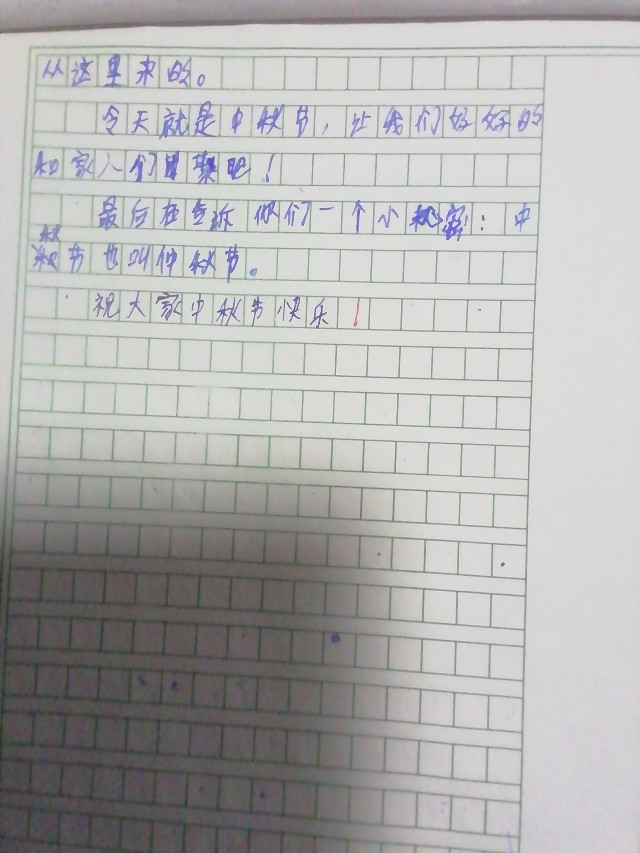 从这里来的。
今天就是中秋节，让我们好好的
和家人们团聚吧！
最后在告诉你们一个小秘密：中
秋节也叫仲秋节。
祝大家中秋节快乐！